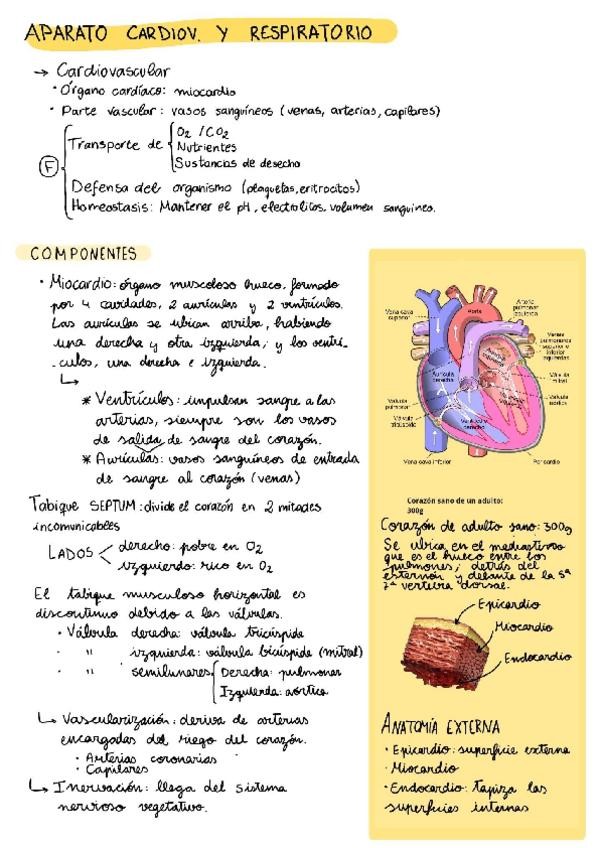 APARATO CARDIOV. Y RESPIRATORIO
→ Cardiovascular
· Órgano cardíaco: miocardio
· Parte vascular: vasos sanguíneos (venas, arterias, capilares)
F
Transporte de
O₂ / CO₂
Nutrientes
Sustancias de desecho
Defensa del organismo (plaquetas, eritrocitos)
Homeostasis: Mantener el pH, electrolitos, volumen sanguíneo.
COMPONENTES
· Miocardio: órgano muscoloso hueco, formado
por 4 cavidades, 2 aurículas y 2 ventrículos.
Las aurículas se ubican arriba, habiendo
una derecha y otra izquierda, y los ventrí-
culos, una derecha e izquierda.
* Ventrículos: impulsan sangre a las
arterias, siempre son los vasos
de salida de sangre del corazón.
* Aurículas: vasos sanguíneos de entrada
de sangre al corazón (venas)
Tabique SEPTUM: divide el corazón en 2 mitades
incomunicables
LADOS
derecho: pobre en O₂
izquierdo: rico en O₂
El tabique musculoso horizontal es
discontinuo debido a las válvulas.
· Válvula derecha: válvula tricúspide
· " izquierda: válvula bicúspide (mitral)
· " semilunares
Derecha: pulmonar
Izquierda: aórtica
↳ Vascularización: deriva de arterias
encargadas del riego del corazón.
· Arterias coronarias
· Capilares
↳ Inervación: llega del sistema
nervioso vegetativo.
Vena cava superior
Aorta
Arteria pulmonar izquierda
Venas pulmonares superior e inferior izquierdas
Aurícula derecha
Aurícula izquierda
Válvula mitral
Válvula aórtica
Válvula pulmonar
Válvula tricúspide
Ventrículo derecho
Vena cava inferior
Pericardio
Corazón sano de un adulto:
300g
Corazón de adulto sano: 300g
Se ubica en el mediastino
que es el hueco entre los
pulmones; detrás del
esternón y delante de la 5ª
7ª vertebra dorsal.
Epicardio
Miocardio
Endocardio
ANATOMÍA EXTERNA
· Epicardio: superficie externa
· Miocardio
· Endocardio: tapiza las
superficies internas